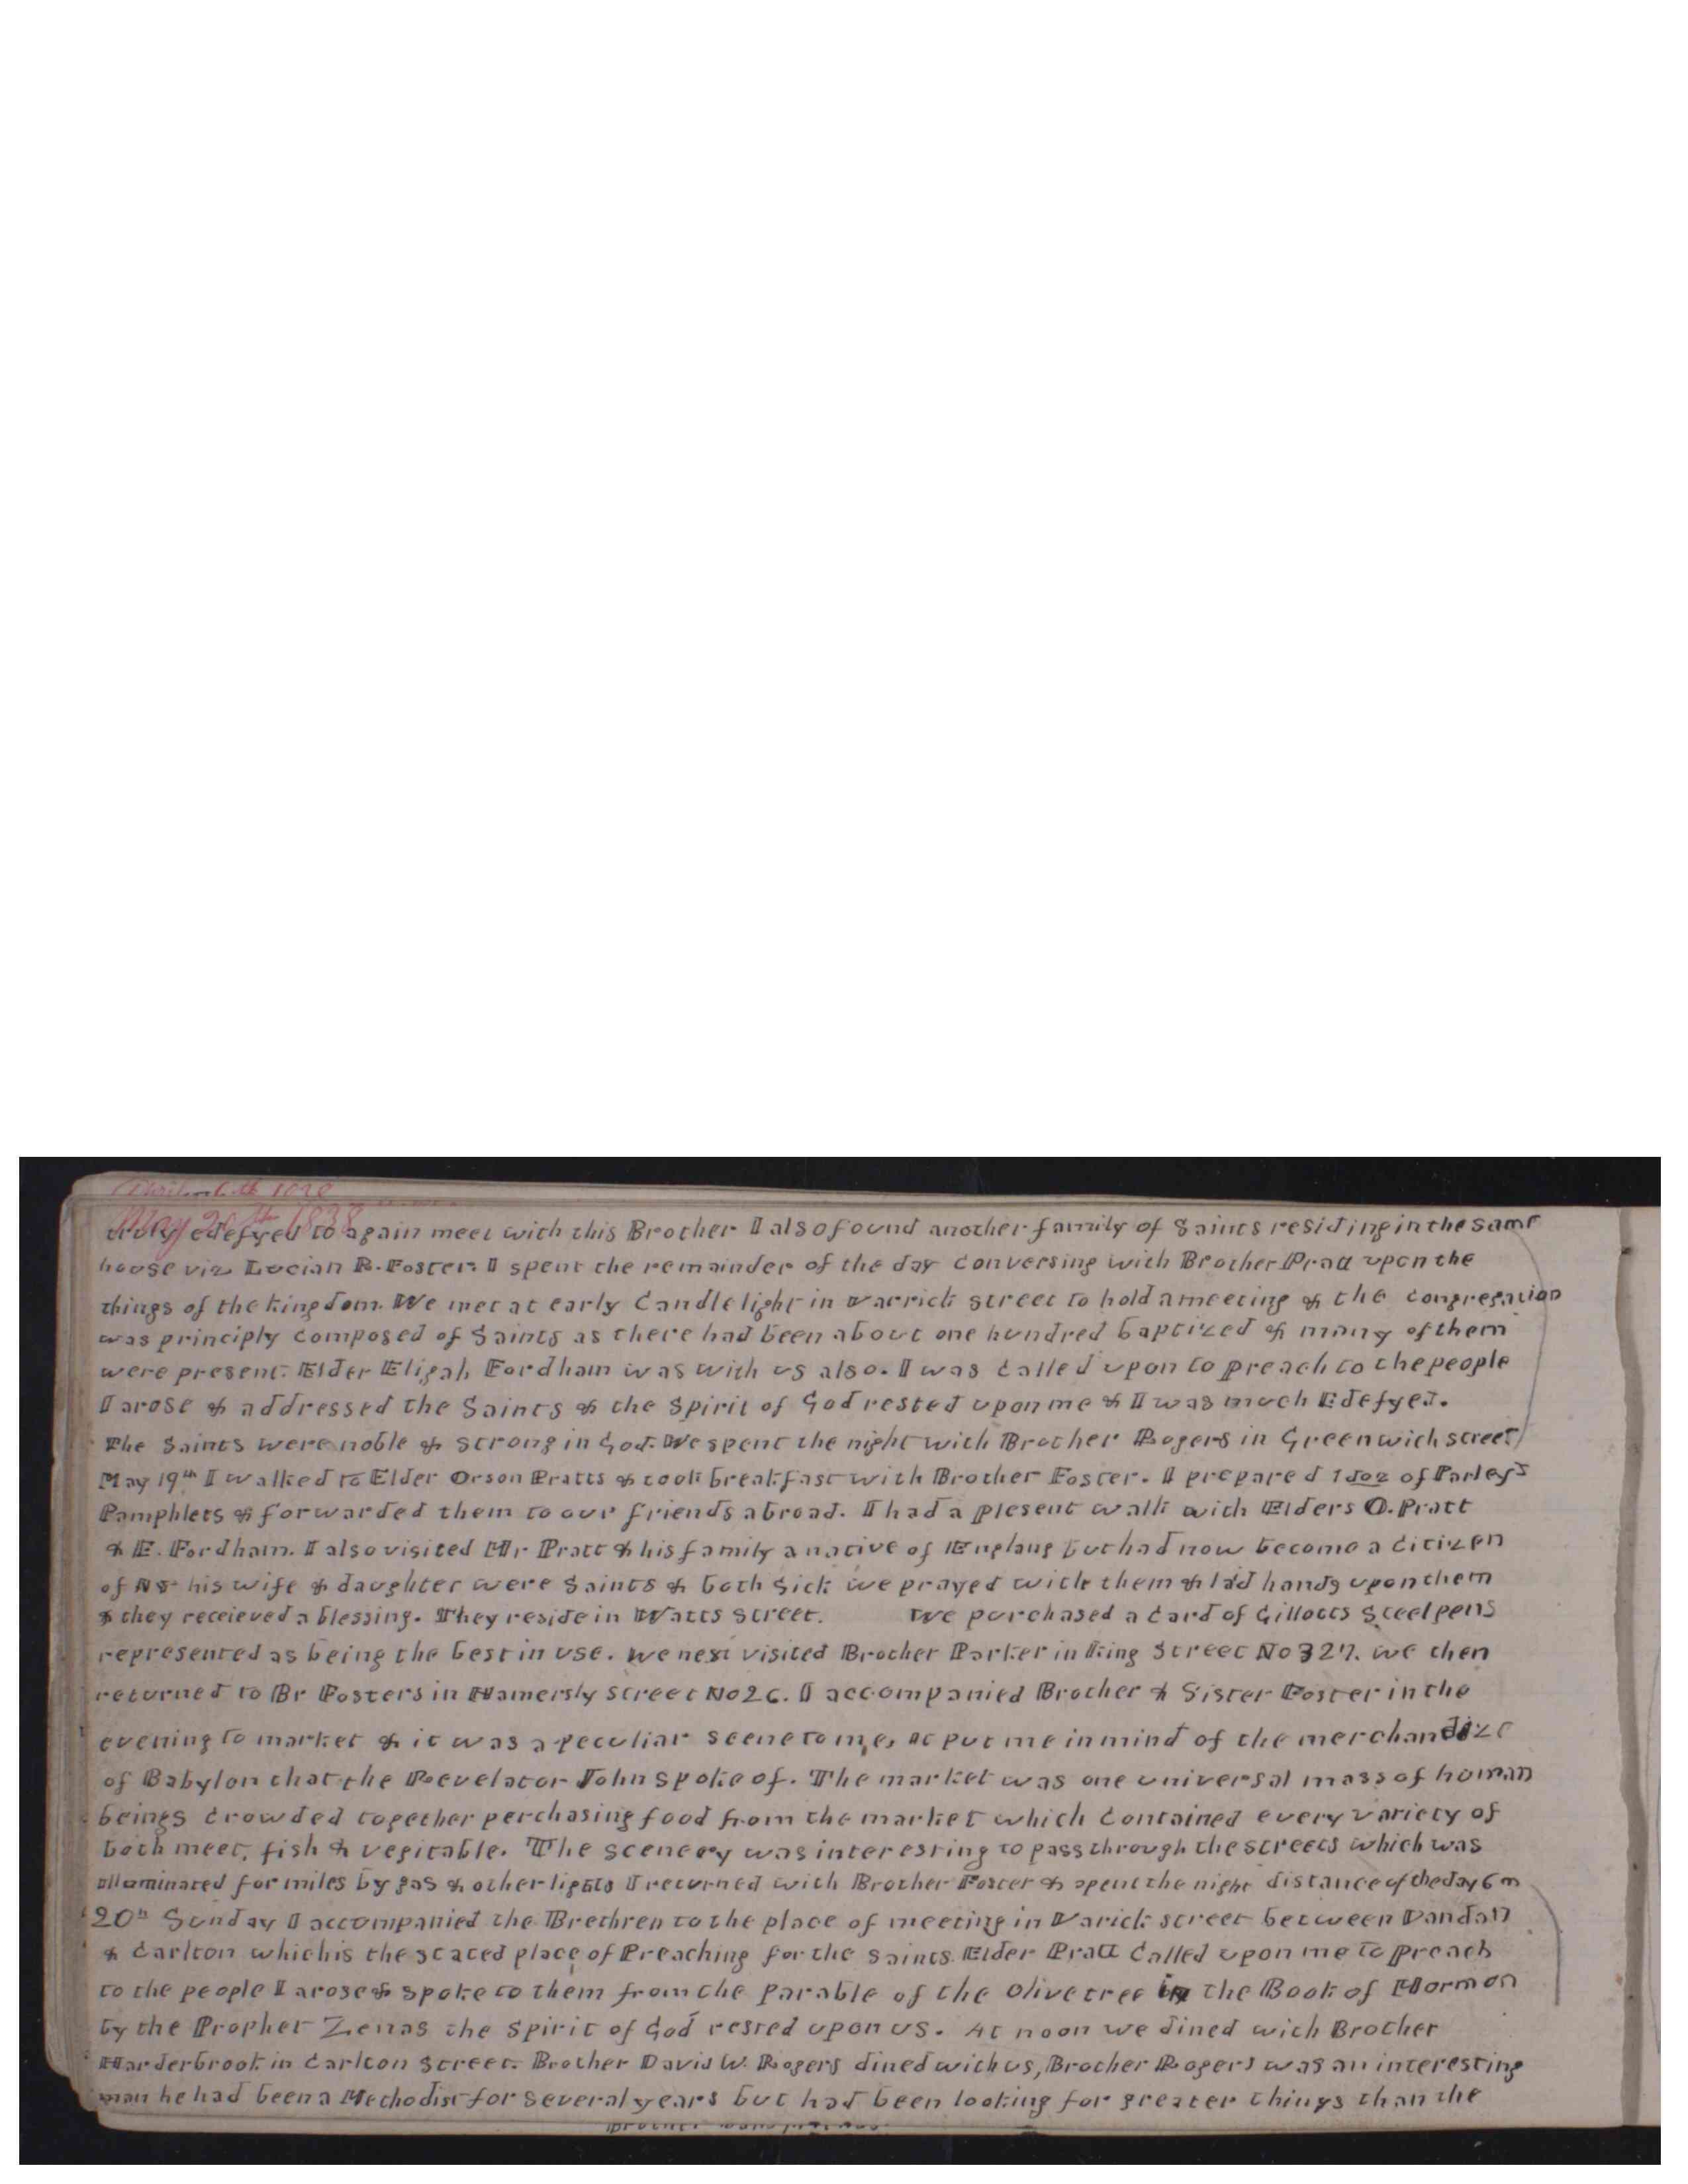 May 20th 1838
truly edefyed to again meet with this Brother I also found another family of Saints residing in the same
house viz Lucian R. Foster. I spent the remainder of the day Conversing with Brother Pratt upon the
things of the kingdom. We met at early Candle light in Varrick street to hold a meeting & the Congregation
was principly Composed of Saints as there had been about one hundred baptized & many of them
were present. Elder Eligah Fordham was with us also. I was Called upon to preach to the people
I arose & addressed the Saints & the Spirit of God rested upon me & I was much Edefyed.
The Saints were noble & strong in God. We spent the night with Brother Rogers in Greenwich street
May 19th I walked to Elder Orson Pratts & took breakfast with Brother Foster. I prepared 1 doz of Parley's
Pamphlets & forwarded them to our friends abroad. I had a plesent walk with Elders O. Pratt
& E. Fordham. I also visited Mr Pratt & his family a native of Englang but had now become a Citizen
of NY his wife & daughter were Saints & both Sick we prayed with them & laid hands upon them
& they receieved a blessing. They reside in Watts Street. We purchased a Card of Gillotts Steel pens
represented as being the best in use. We next visited Brother Parker in King Street No 327. We then
returned to Br Fosters in Hamersly Street No 26. I accompanied Brother & Sister Foster in the
evening to market & it was a peculiar seene to me, it put me in mind of the merchandize
of Babylon that the Revelator John spoke of. The market was one universal mass of human
beings Crowded together perchasing food from the market which Contained every variety of
both meet, fish & vegitable. The scenery was interesting to pass through the streets which was
illuminated for miles by gas & other lights I returned with Brother Foster & spent the night distance of the day 6 m
20th Sunday I accompanied the Brethren to the place of meeting in Varick street between Vandan
& Carlton which is the stated place of Preaching for the Saints. Elder Pratt Called upon me to preach
to the people I arose & spoke to them from the parable of the Olive tree in the Book of Mormon
by the Prophet Zenas the Spirit of God rested upon us. At noon we dined with Brother
Harderbrook in Carlton Street. Brother David W. Rogers dined with us, Brother Rogers was an interesting
man he had been a Methodist for Several years but had been looking for greater things than the